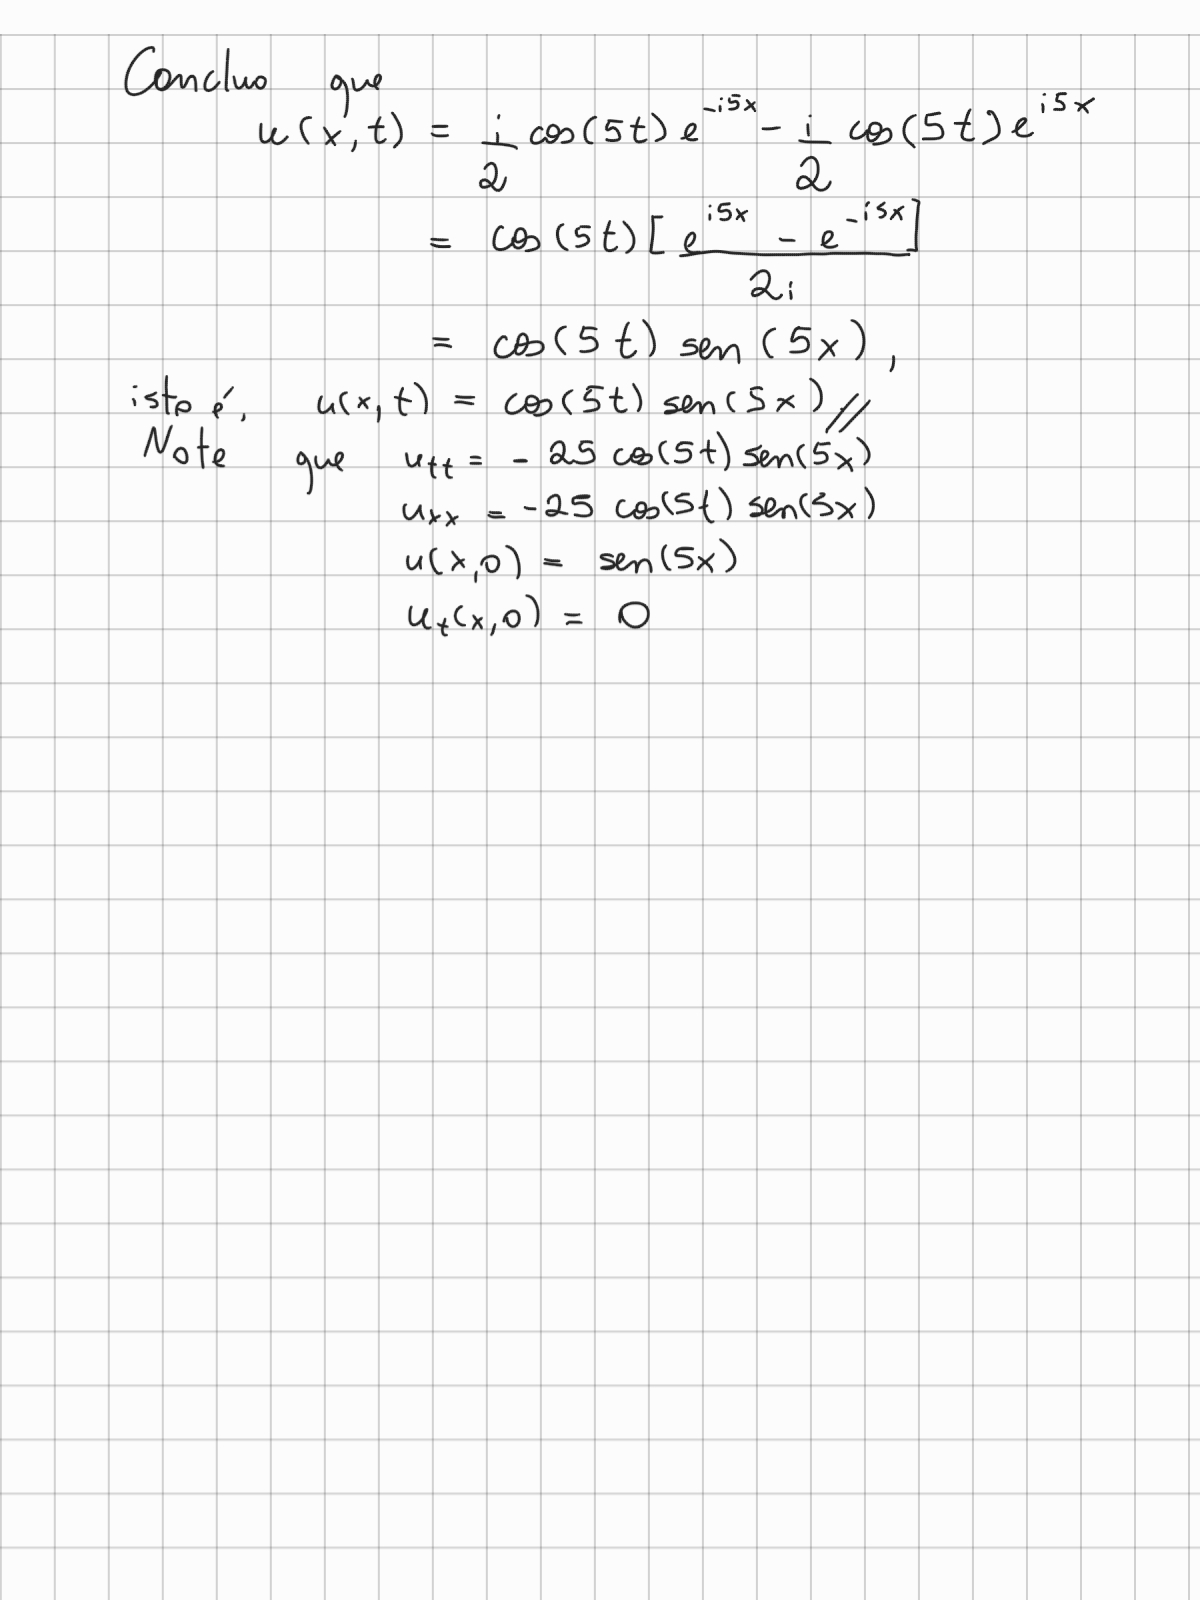 Concluo que
u(x,t) = i/2 cos(5t) e^{-i5x} - i/2 cos(5t) e^{i5x}
= cos(5t) [e^{i5x} - e^{-i5x}]/2i
= cos(5t) sen(5x),
isto é, u(x,t) = cos(5t) sen(5x) //
Note que u_{tt} = - 25 cos(5t) sen(5x)
u_{xx} = -25 cos(5t) sen(5x)
u(x,0) = sen(5x)
u_t(x,0) = 0